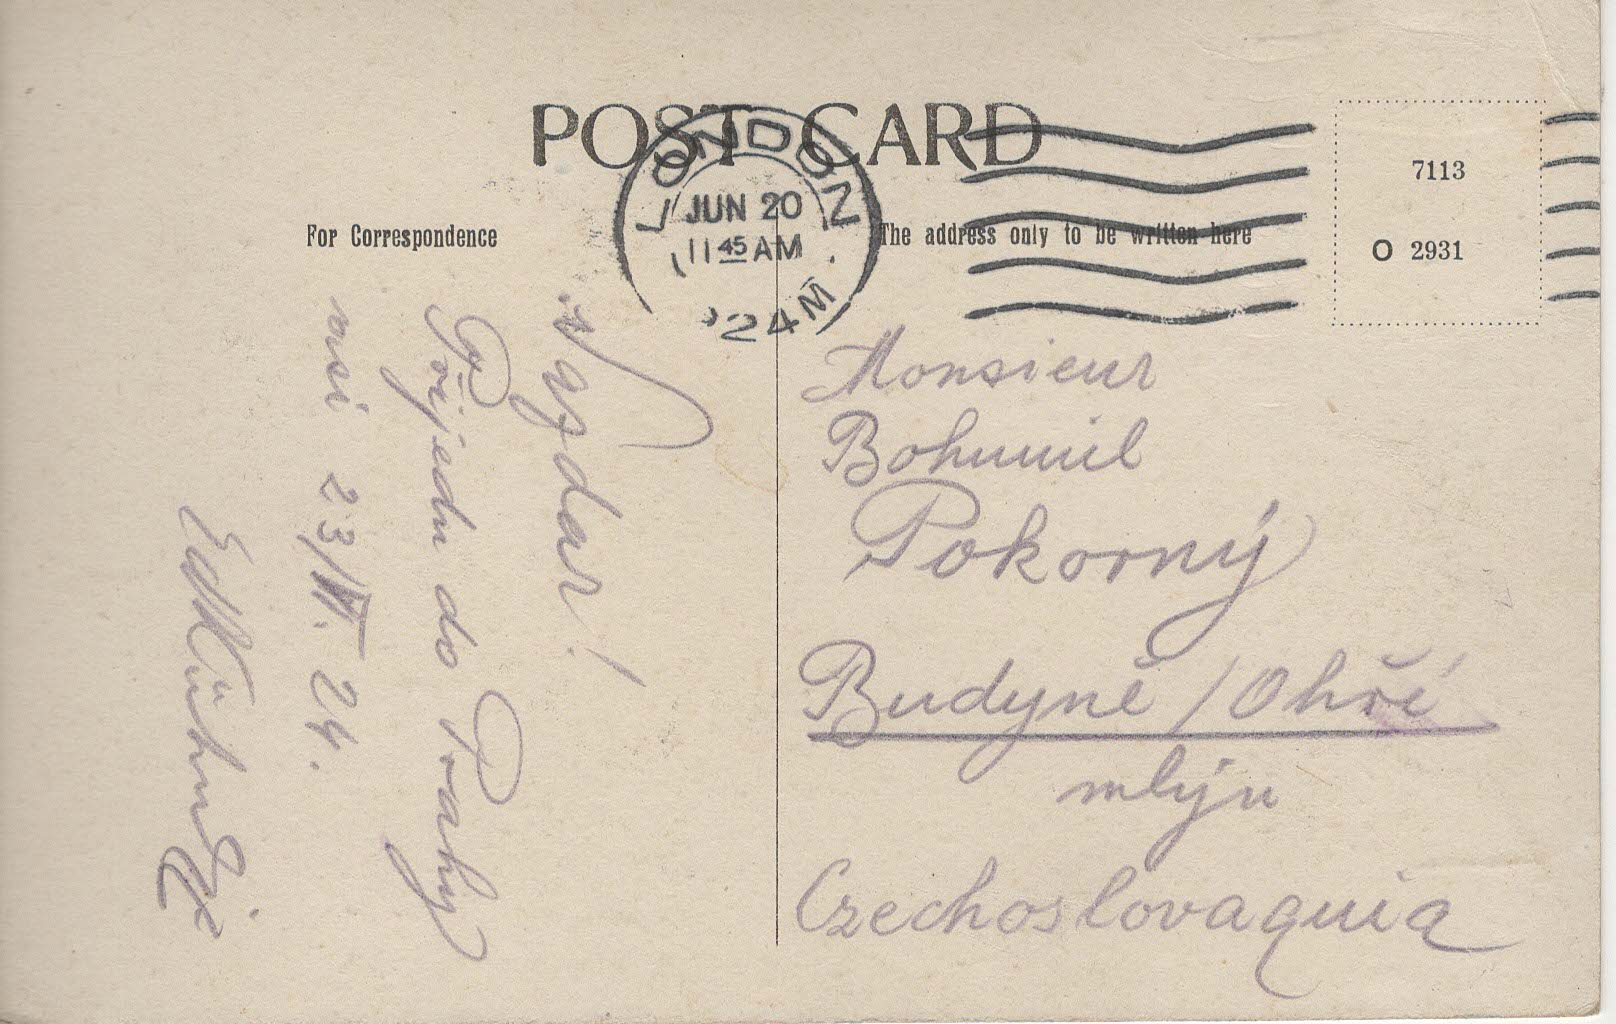 POST CARD
LONDON
JUN 20
11 45 AM
'24 M
For Correspondence
The address only to be written here
7113
O 2931
Nazdar!
Přijedu do Prahy
asi 23/VI. 24.
Ed
Monsieur
Bohumil
Pokorný
Budyně / Ohří
mlýn
Czechoslovaquia